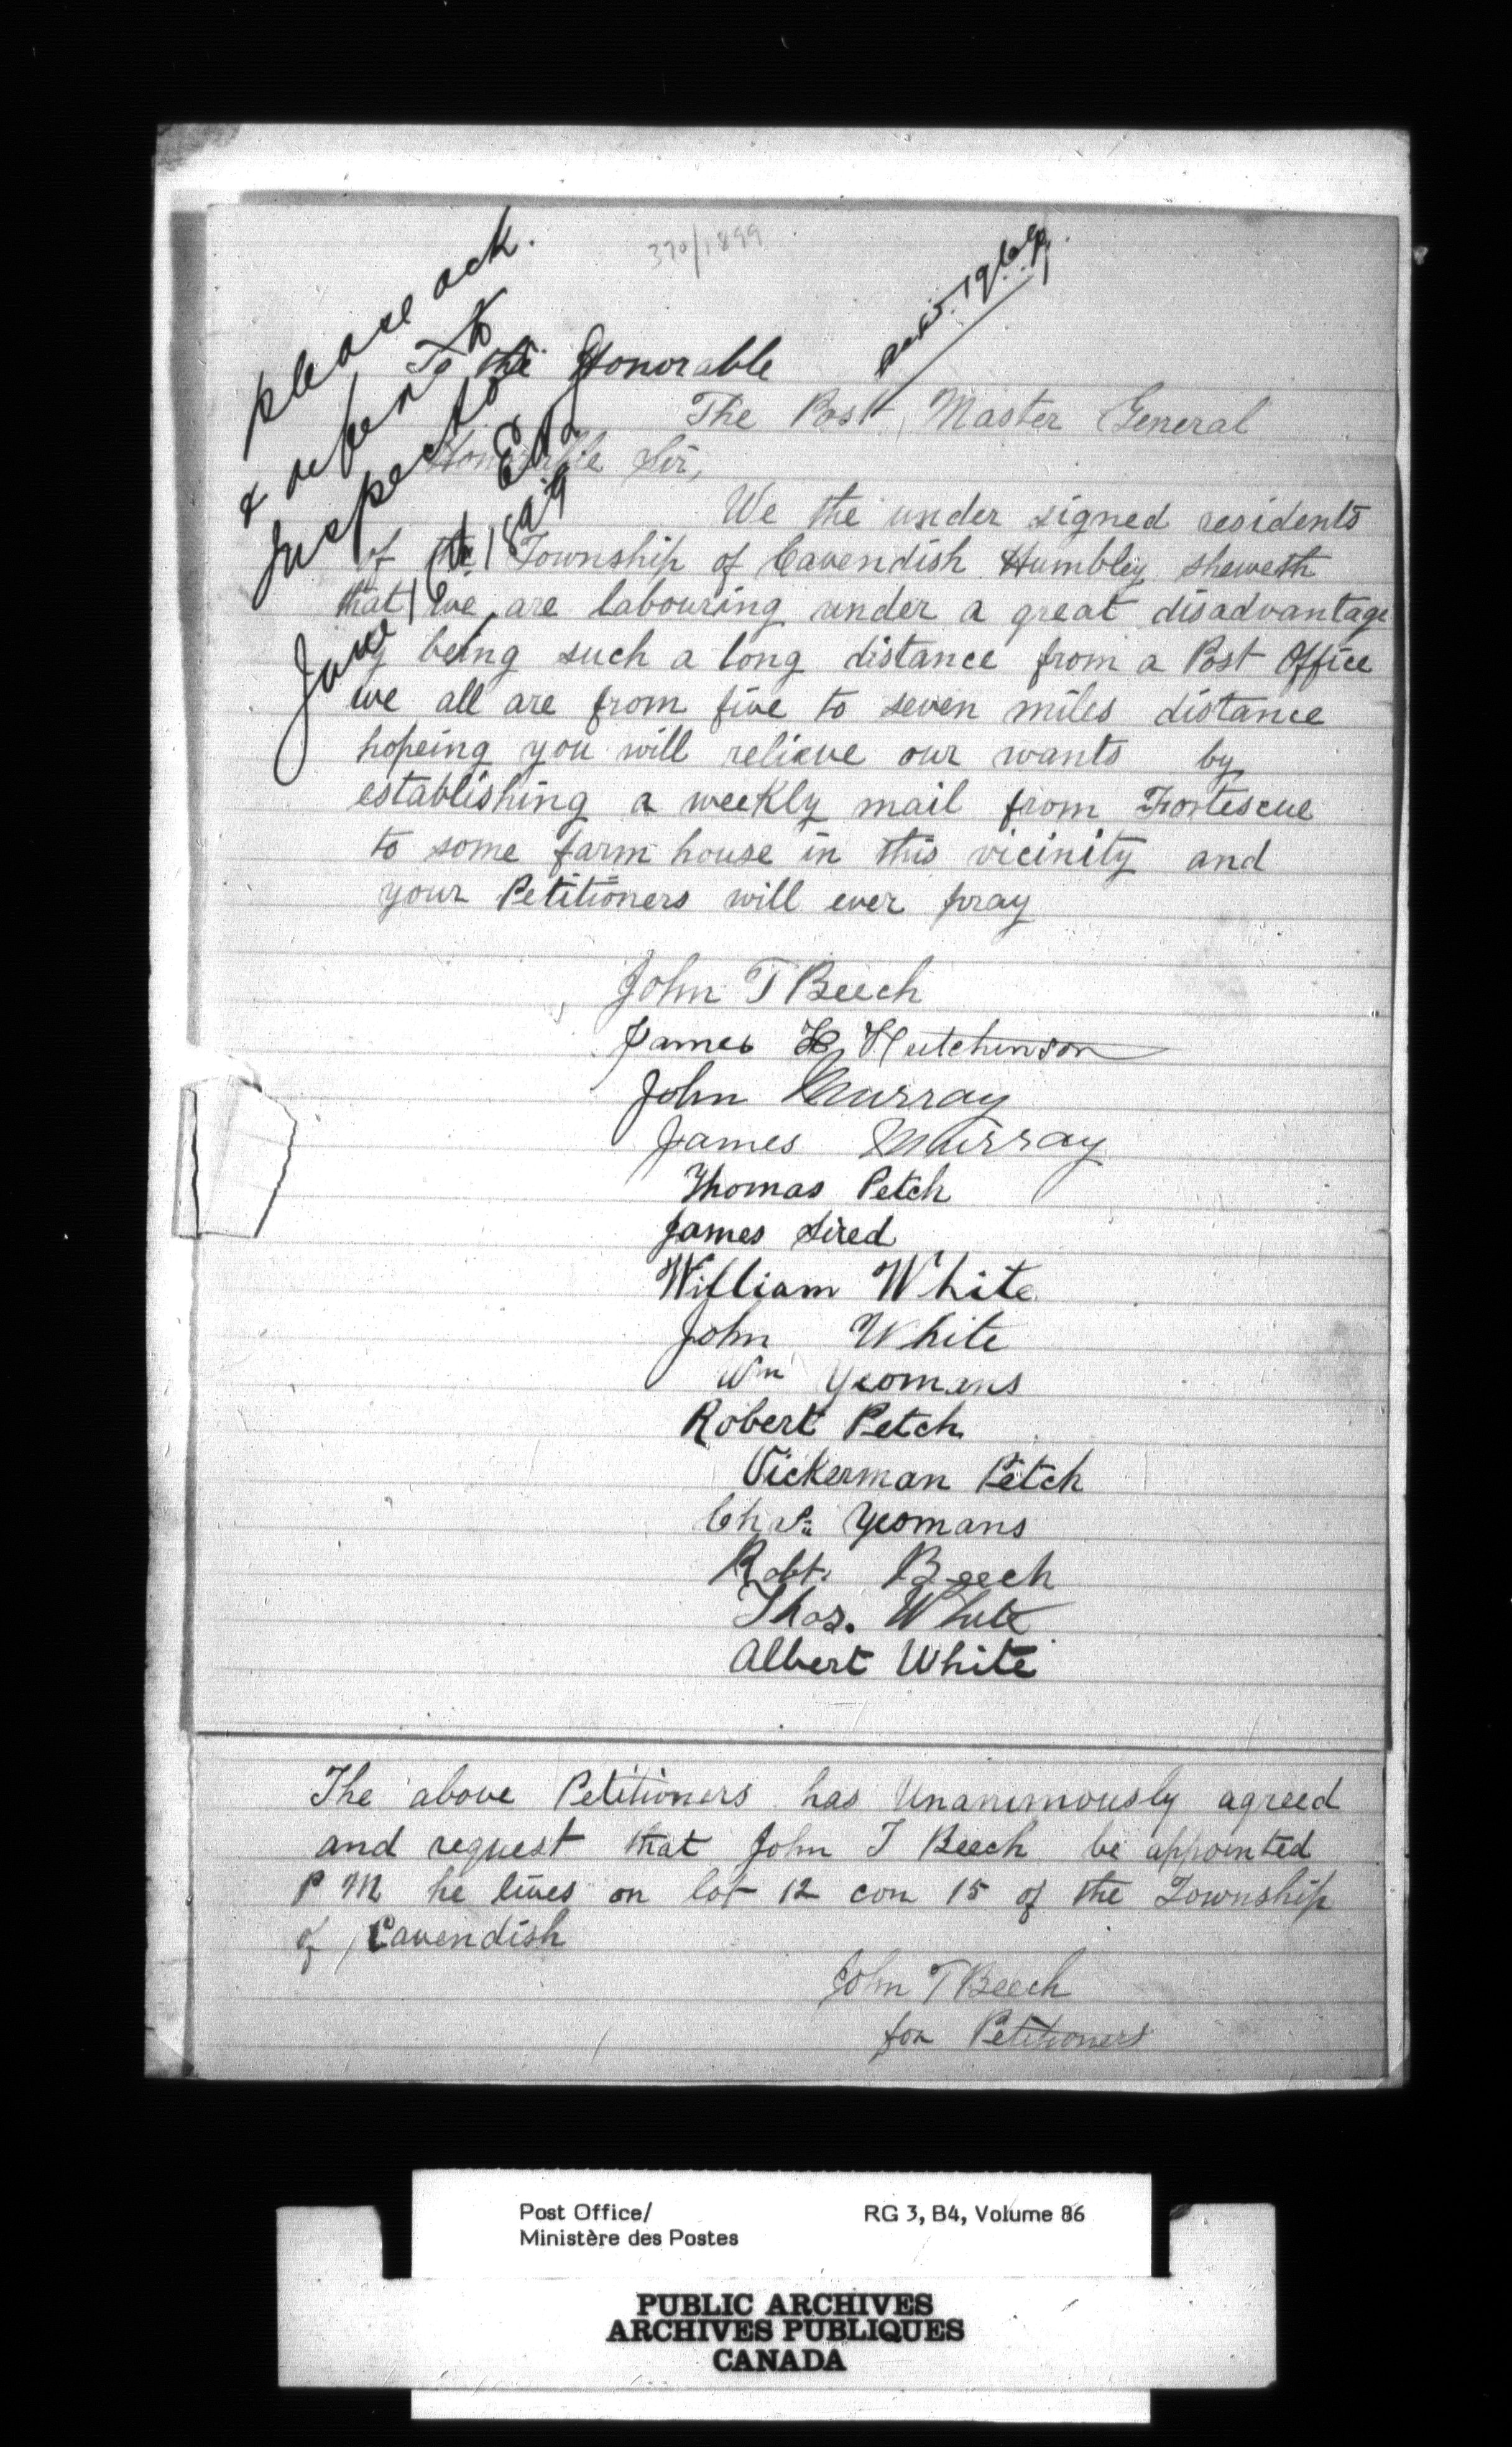 370/1899
please ack.
& refer to
Inspector
June 16th 1899
To the Honorable
The Post Master General
Honorable Sir,
We the under signed residents
of the Township of Cavendish Humbley sheweth
that we are labouring under a great disadvantage
by being such a long distance from a Post Office
we all are from five to seven miles distance
hopeing you will relieve our wants by
establishing a weekly mail from Fortescue
to some farm house in this vicinity and
your Petitioners will ever pray
John T Beech
James H Hutchinson
John Murray
James Murray
Thomas Petch
James Sired
William White
John White
Wm Yeomans
Robert Petch
Vickerman Petch
Chas Yeomans
Robt. Beech
Thos. White
Albert White
The above Petitioners has Unanimously agreed
and request that John T Beech be appointed
P M he lives on lot 12 con 15 of the Township
of Cavendish
John T Beech
for Petitioners
Post Office/
Ministère des Postes
RG 3, B4, Volume 86
PUBLIC ARCHIVES
ARCHIVES PUBLIQUES
CANADA